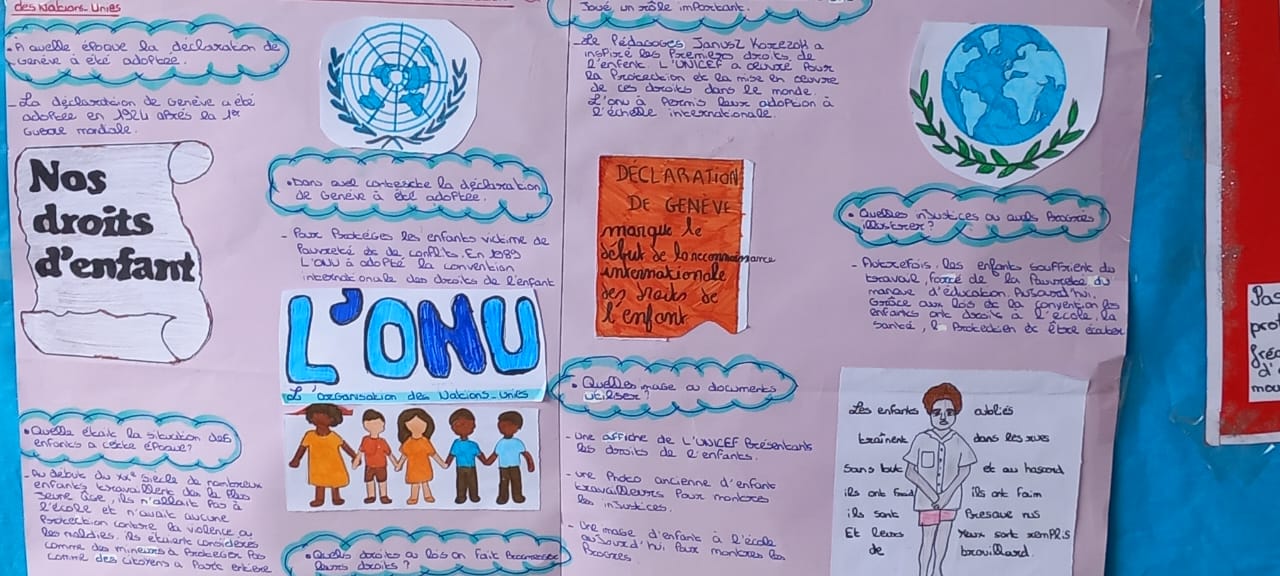 des Nations-Unies
• À quelle époque la déclaration de
Genève à été adoptée.
- La déclaration de Genève a été
adoptée en 1924 après la 1er
Guerre mondiale.
Nos
droits
d'enfant
• Quelle était la situation des
enfants a cette époque?
- Au début du XXe siècle de nombreux
enfants travaillent dès le plus
jeune âge, ils n'allait pas à
l'école et n'avait aucune
Protection contre la violence ou
les maladies. ils étaient considérés
comme des mineurs à Protéger Pas
comme des citoyens a Parts entière
• Dans quel contexte la déclaration
de Genève à été adoptée.
- Pour Protéger les enfants victime de
Pauvreté et de conflits. En 1989
L'ONU à adopté la convention
internationale des droits de l'enfant
L'ONU
L'Organisation des Nations-Unies
• Quels droits ou lois on fait Progresser
leurs droits ?
Joué un rôle important.
- Le Pédagoges Janusz Korczok a
inspiré les Premiers droits de
l'enfent. L'UNICEF a œuvré Pour
la Protection et la mise en œuvre
de ces droits dans le monde.
L'onu à Permis leur adoption à
l'échelle internationale.
DÉCLARATION
DE GENÈVE
marque le
début de la reconnaissance
internationale
des droits de
l'enfant
• Quelles image ou documents
utiliser ?
- Une affiche de L'UNICEF Présentants
les droits de l'enfants.
- une Photo ancienne d'enfant
travailleurs Pour montrer
les injustices.
- Une image d'enfant à l'école
aujourd'hui Pour montrer les
Progrès
• Quelles injustices ou quels Progrès
illustrer ?
- Autrefois, les enfants souffrient du
travail forcé de la Pauvreté du
manque d'éducation. Aujourd'hui,
Grâce aux lois de la convention les
enfants ont droits à l'école, la
Santé, la Protection et être écouter
Les enfants oubliés
traînent dans les rues
Sans but et au hasard
ils ont froid ils ont faim
ils sont Presque nus
Et leurs Yeux sont remplis
de brouillard.